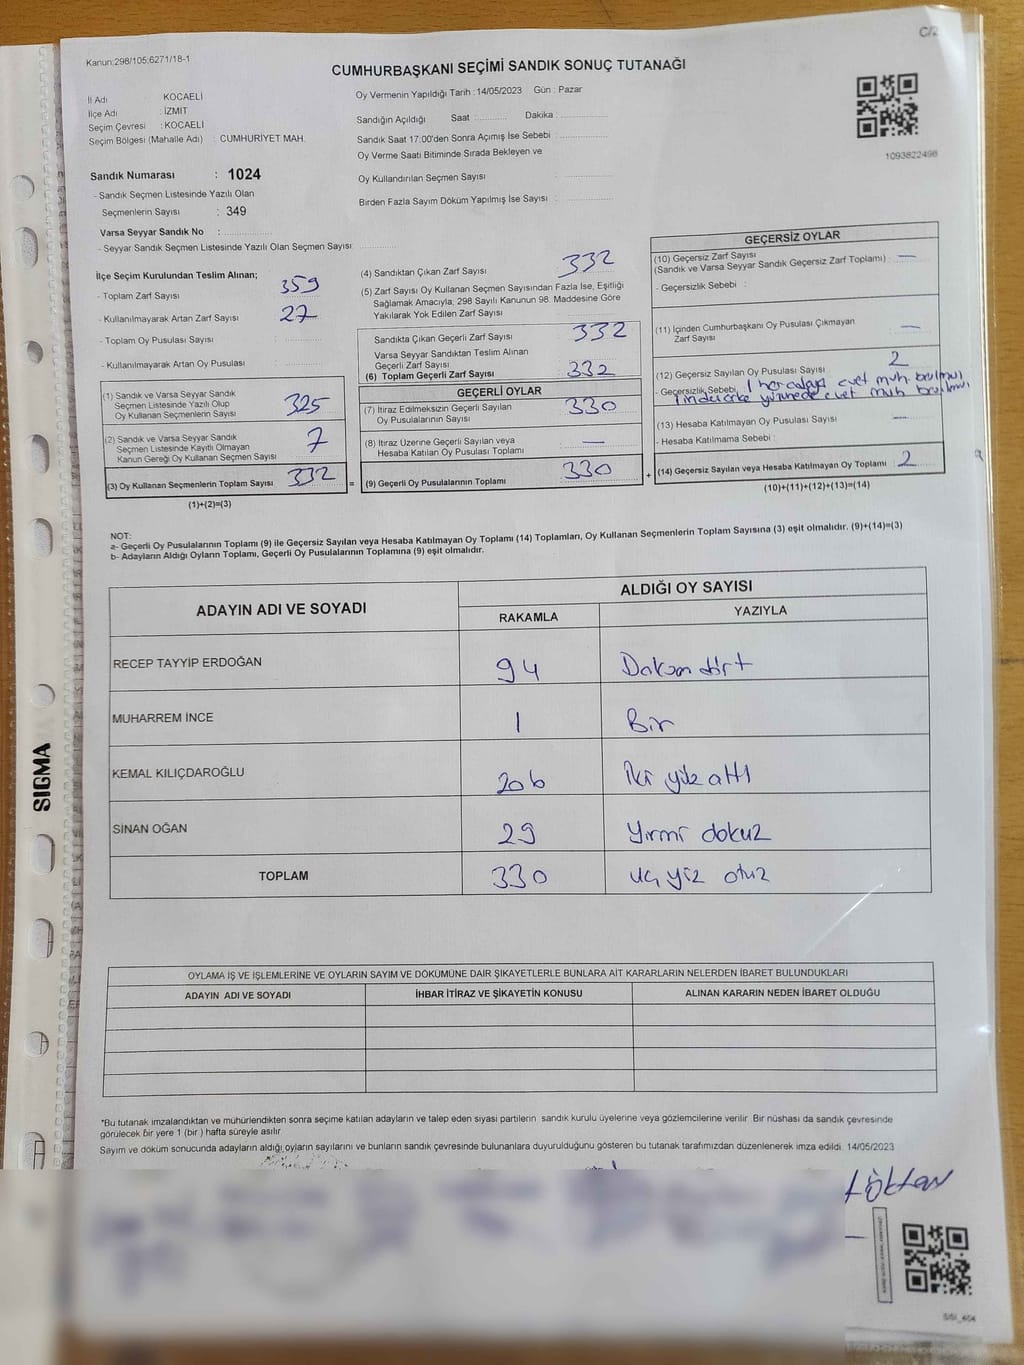 C/2
Kanun:298/105,6271/18-1
CUMHURBAŞKANI SEÇİMİ SANDIK SONUÇ TUTANAĞI
İl Adı KOCAELİ
İlçe Adı : İZMİT
Seçim Çevresi : KOCAELİ
Seçim Bölgesi (Mahalle Adı) : CUMHURİYET MAH.
Sandık Numarası : 1024
- Sandık Seçmen Listesinde Yazılı Olan
Seçmenlerin Sayısı : 349
Varsa Seyyar Sandık No :
- Seyyar Sandık Seçmen Listesinde Yazılı Olan Seçmen Sayısı:
Oy Vermenin Yapıldığı Tarih : 14/05/2023 Gün : Pazar
Sandığın Açıldığı Saat : Dakika :
Sandık Saat 17:00'den Sonra Açımış İse Sebebi :
Oy Verme Saati Bitiminde Sırada Bekleyen ve
Oy Kullandırılan Seçmen Sayısı :
Birden Fazla Sayım Döküm Yapılmış İse Sayısı :
1093822498
İlçe Seçim Kurulundan Teslim Alınan;
- Toplam Zarf Sayısı : 359
- Kullanılmayarak Artan Zarf Sayısı : 27
- Toplam Oy Pusulası Sayısı :
- Kullanılmayarak Artan Oy Pusulası :
(1) Sandık ve Varsa Seyyar Sandık
Seçmen Listesinde Yazılı Olup
Oy Kullanan Seçmenlerin Sayısı : 325
(2) Sandık ve Varsa Seyyar Sandık
Seçmen Listesinde Kayıtlı Olmayan
Kanun Gereği Oy Kullanan Seçmen Sayısı : 7
(3) Oy Kullanan Seçmenlerin Toplam Sayısı : 332
(1)+(2)=(3)
=
(4) Sandıktan Çıkan Zarf Sayısı : 332
(5) Zarf Sayısı Oy Kullanan Seçmen Sayısından Fazla İse, Eşitliği
Sağlamak Amacıyla, 298 Sayılı Kanunun 98. Maddesine Göre
Yakılarak Yok Edilen Zarf Sayısı :
Sandıkta Çıkan Geçerli Zarf Sayısı : 332
Varsa Seyyar Sandıktan Teslim Alınan
Geçerli Zarf Sayısı :
(6) Toplam Geçerli Zarf Sayısı : 332
GEÇERLİ OYLAR
(7) İtiraz Edilmeksizin Geçerli Sayılan
Oy Pusulalarının Sayısı : 330
(8) İtiraz Üzerine Geçerli Sayılan veya
Hesaba Katılan Oy Pusulası Toplamı : —
(9) Geçerli Oy Pusulalarının Toplamı : 330
+
GEÇERSİZ OYLAR
(10) Geçersiz Zarf Sayısı
(Sandık ve Varsa Seyyar Sandık Geçersiz Zarf Toplamı) : —
- Geçersizlik Sebebi :
(11) İçinden Cumhurbaşkanı Oy Pusulası Çıkmayan
Zarf Sayısı : —
(12) Geçersiz Sayılan Oy Pusulası Sayısı : 2
- Geçersizlik Sebebi evet muh
evet muh
(13) Hesaba Katılmayan Oy Pusulası Sayısı : —
- Hesaba Katılmama Sebebi :
(14) Geçersiz Sayılan veya Hesaba Katılmayan Oy Toplamı : 2
(10)+(11)+(12)+(13)=(14)
NOT:
a- Geçerli Oy Pusulalarının Toplamı (9) ile Geçersiz Sayılan veya Hesaba Katılmayan Oy Toplamı (14) Toplamları, Oy Kullanan Seçmenlerin Toplam Sayısına (3) eşit olmalıdır. (9)+(14)=(3)
b- Adayların Aldığı Oyların Toplamı, Geçerli Oy Pusulalarının Toplamına (9) eşit olmalıdır.
ADAYIN ADI VE SOYADI ALDIĞI OY SAYISI
RAKAMLA YAZIYLA
RECEP TAYYİP ERDOĞAN 94 Doksan dört
MUHARREM İNCE 1 Bir
KEMAL KILIÇDAROĞLU 206 iki yüz altı
SİNAN OĞAN 29 Yirmi dokuz
TOPLAM 330 üç yüz otuz
OYLAMA İŞ VE İŞLEMLERİNE VE OYLARIN SAYIM VE DÖKÜMÜNE DAİR ŞİKAYETLERLE BUNLARA AİT KARARLARIN NELERDEN İBARET BULUNDUKLARI
ADAYIN ADI VE SOYADI İHBAR İTİRAZ VE ŞİKAYETİN KONUSU ALINAN KARARIN NEDEN İBARET OLDUĞU
*Bu tutanak imzalandıktan ve mühürlendikten sonra seçime katılan adayların ve talep eden siyasi partilerin sandık kurulu üyelerine veya gözlemcilerine verilir. Bir nüshası da sandık çevresinde
görülecek bir yere 1 (bir ) hafta süreyle asılır.
Sayım ve döküm sonucunda adayların aldığı oyların sayılarını ve bunların sandık çevresinde bulunanlara duyurulduğunu gösteren bu tutanak tarafımızdan düzenlenerek imza edildi. 14/05/2023
SIGMA